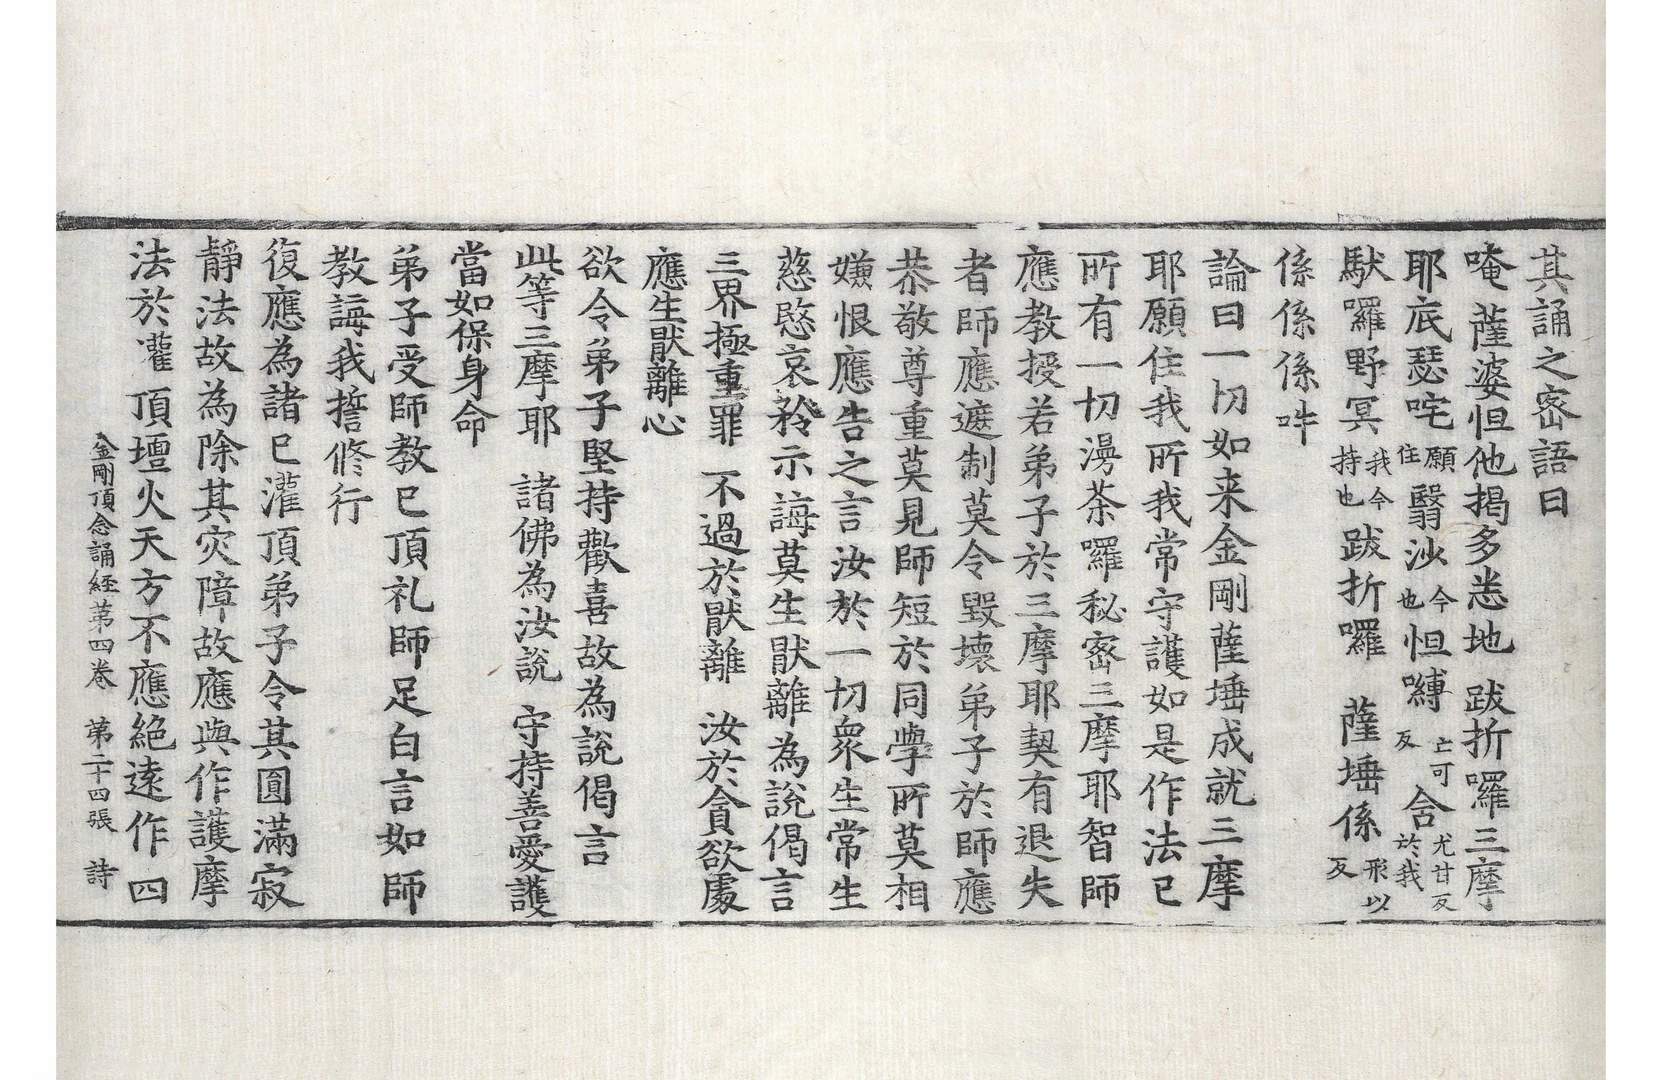 其誦之密語曰
唵 薩婆怛他揭多悉地 跋折囉三摩
耶底瑟咤願住翳沙今也怛嚩亡可反含尤甘反於我
馱囉野冥我今持也跋折囉 薩埵係形以反
係係係吽
論曰一切如来金剛薩埵成就三摩
耶願住我所我常守護如是作法已
所有一切漫荼囉秘密三摩耶智師
應教授若弟子於三摩耶契有退失
者師應遮制莫令毀壞弟子於師應
恭敬尊重莫見師短於同學所莫相
嫌恨應告之言汝於一切衆生常生
慈愍哀矜示誨莫生猒離為說偈言
三界極重罪 不過於猒離 汝於貪欲處
應生猒離心
欲令弟子堅持歡喜故為說偈言
此等三摩耶 諸佛為汝說 守持善愛護
當如保身命
弟子受師教已頂礼師足白言如師
教誨我誓修行
復應為諸已灌頂弟子令其圓滿寂
靜法故為除其灾障故應與作護摩
法於灌頂壇火天方不應絕遠作四
金剛頂念誦經第四卷 第二十四張 詩